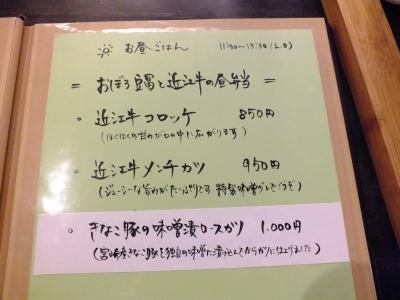 お昼ごはん 11:30~13:30(L.O)
= おぼろ豆腐と近江牛の昼弁当 =
・近江牛コロッケ 850円
(ほくほくの甘のが口の中に広がります)
・近江牛メンチカツ 950円
(ジューシーな旨みがたっぷりです 特製味噌ダレでどうぞ)
・きなこ豚の味噌漬ロースカツ 1,000円
(宮崎産きなこ豚を独自の味噌に漬け込んでからカツに仕上げました)